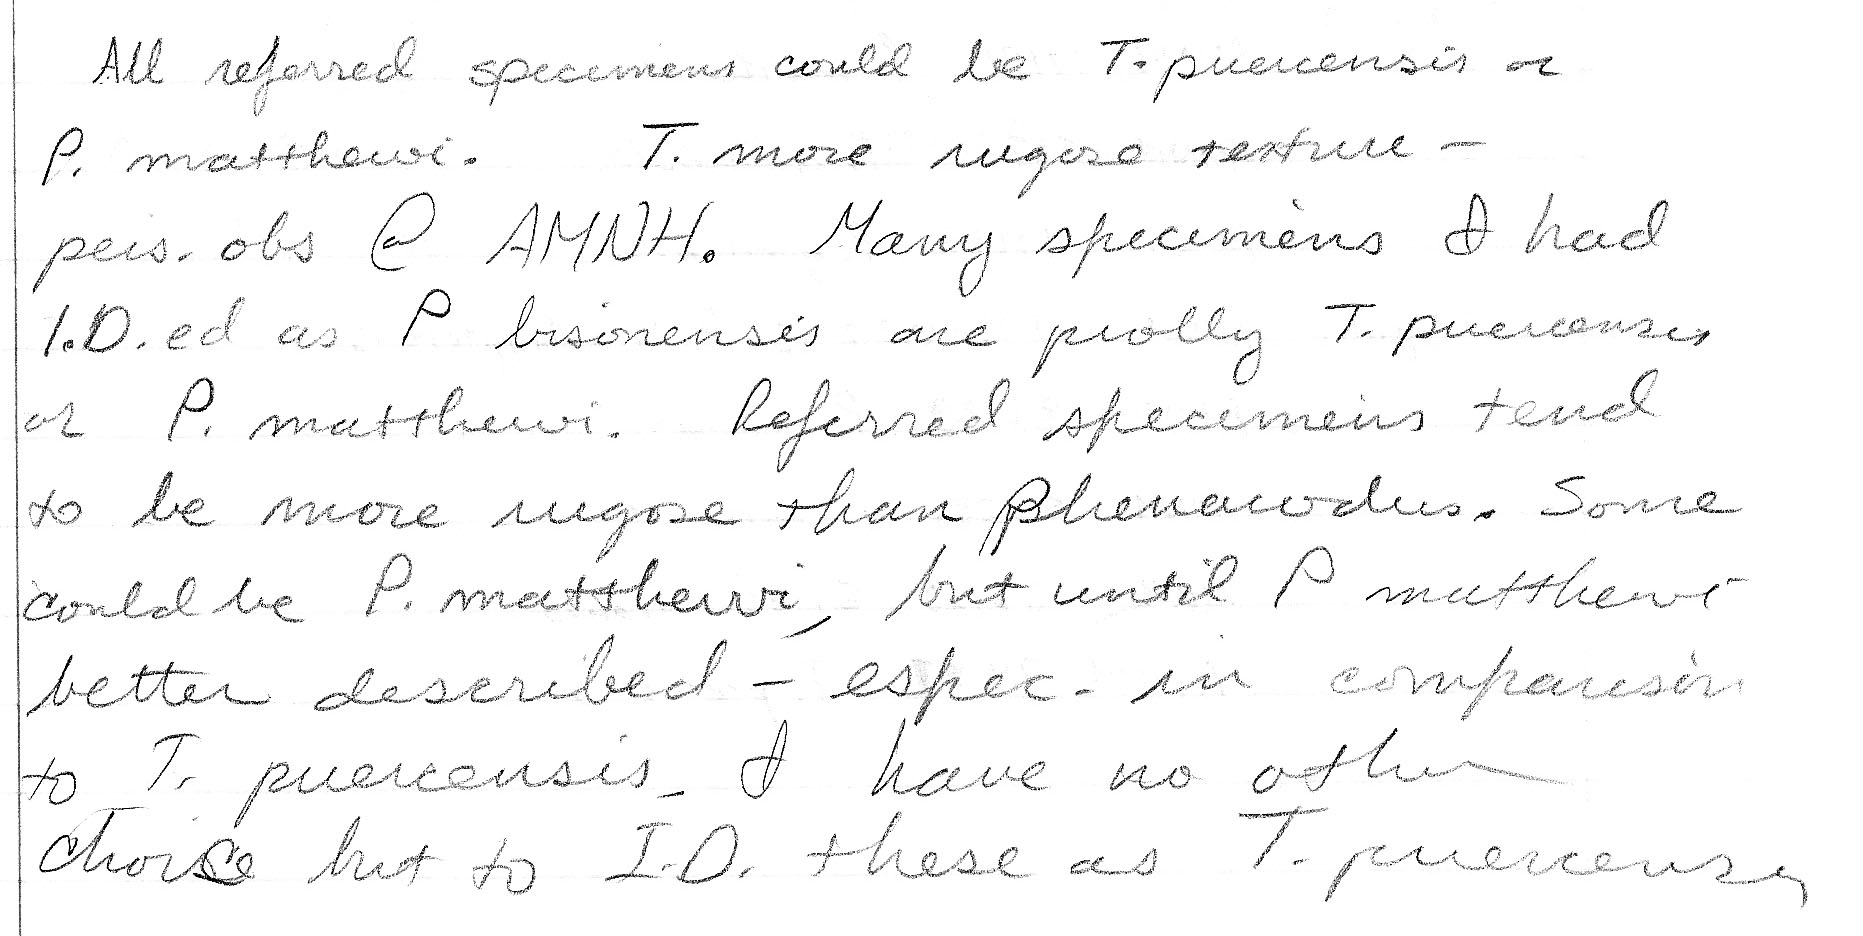 All referred specimens could be T. puercensis or
P. matthewi. T. more rugose texture -
pers. obs @ AMNH. Many specimens I had
I.D.ed as P bisonensis are prolly T. puercensis
or P. matthewi. Referred specimens tend
to be more rugose than Phenacodus. Some
could be P. matthewi, but until P matthewi
better described - espec. in comparison
to T. puercensis - I have no other
choice but to I.D. these as T. puercensis